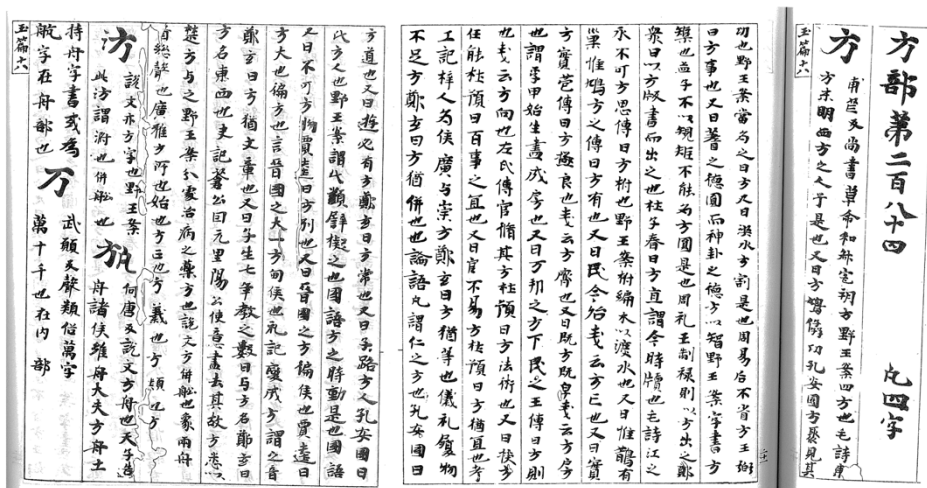 方部第二百八十四 凡四字
方 甫芒反尚書草命和叔宅朔方野王案四方也毛詩東
方未明西方之人于是也又曰方鳩僝功孔安國方聚見其
玉篇十八
功也野王案當名之曰方又曰洪水方割是也周易后不省方王弼
曰方事也又曰蓍之德圓而神卦之德方以智野王案字書方
榘也孟子不以規矩不能爲方圓是也周礼王制禄則以方出之鄭
衆曰以方版書而出之也杜子春曰方直謂今時牘也毛詩江之
永不可方思傳曰方柎也野王案柎編木以渡水也又曰惟鵲有
巢惟鳩方之傳曰方有也又曰民今始戔云方且也又曰實
方實苞傳曰方極良也戔云方齊也又曰既方既皁戔云方房
也謂孚甲始生盡成房也又曰万邦之方下民之王傳曰方則
也戔云方向也左氏傳官脩其方杜預曰方法術也又曰使方
任能杜預曰百事之宜也又曰官不易方杜預曰方猶宜也考
工記梓人爲侯廣与崇方鄭玄曰方猶等也儀礼履物
不足方鄭玄曰方猶併也論語凡謂仁之方也孔安國曰
方道也又曰遊必有方鄭玄曰方常也又曰子路方人孔安國曰
比方人也野王案謂比類譬擬之也國語方之時動是也國語
又曰不可方物賈逵曰方別也又曰晉國之方偏侯也賈逵曰
方大也偏方也言晉國之大方旬侯也礼記變成方謂之音
鄭玄曰方猶文章也又曰子生七年教之數日与方名鄭玄曰
方名東西也史記蒼公曰元里陽公使意盡去其故方悉以
禁方与之野王案分處治病之藥方也說文方併舩也象兩舟
省揔聲也廣雅方所也方始也方正也方義也方類也方
汸 說文亦方字也野王案
此汸謂泭也併舩也 㫄 何唐反說文方舟也天子造
舟諸侯維舟大夫方舟士
持舟字書或爲
航字在舟部也 万 武願反聲類俗萬字
萬十千也在内部
玉篇十八